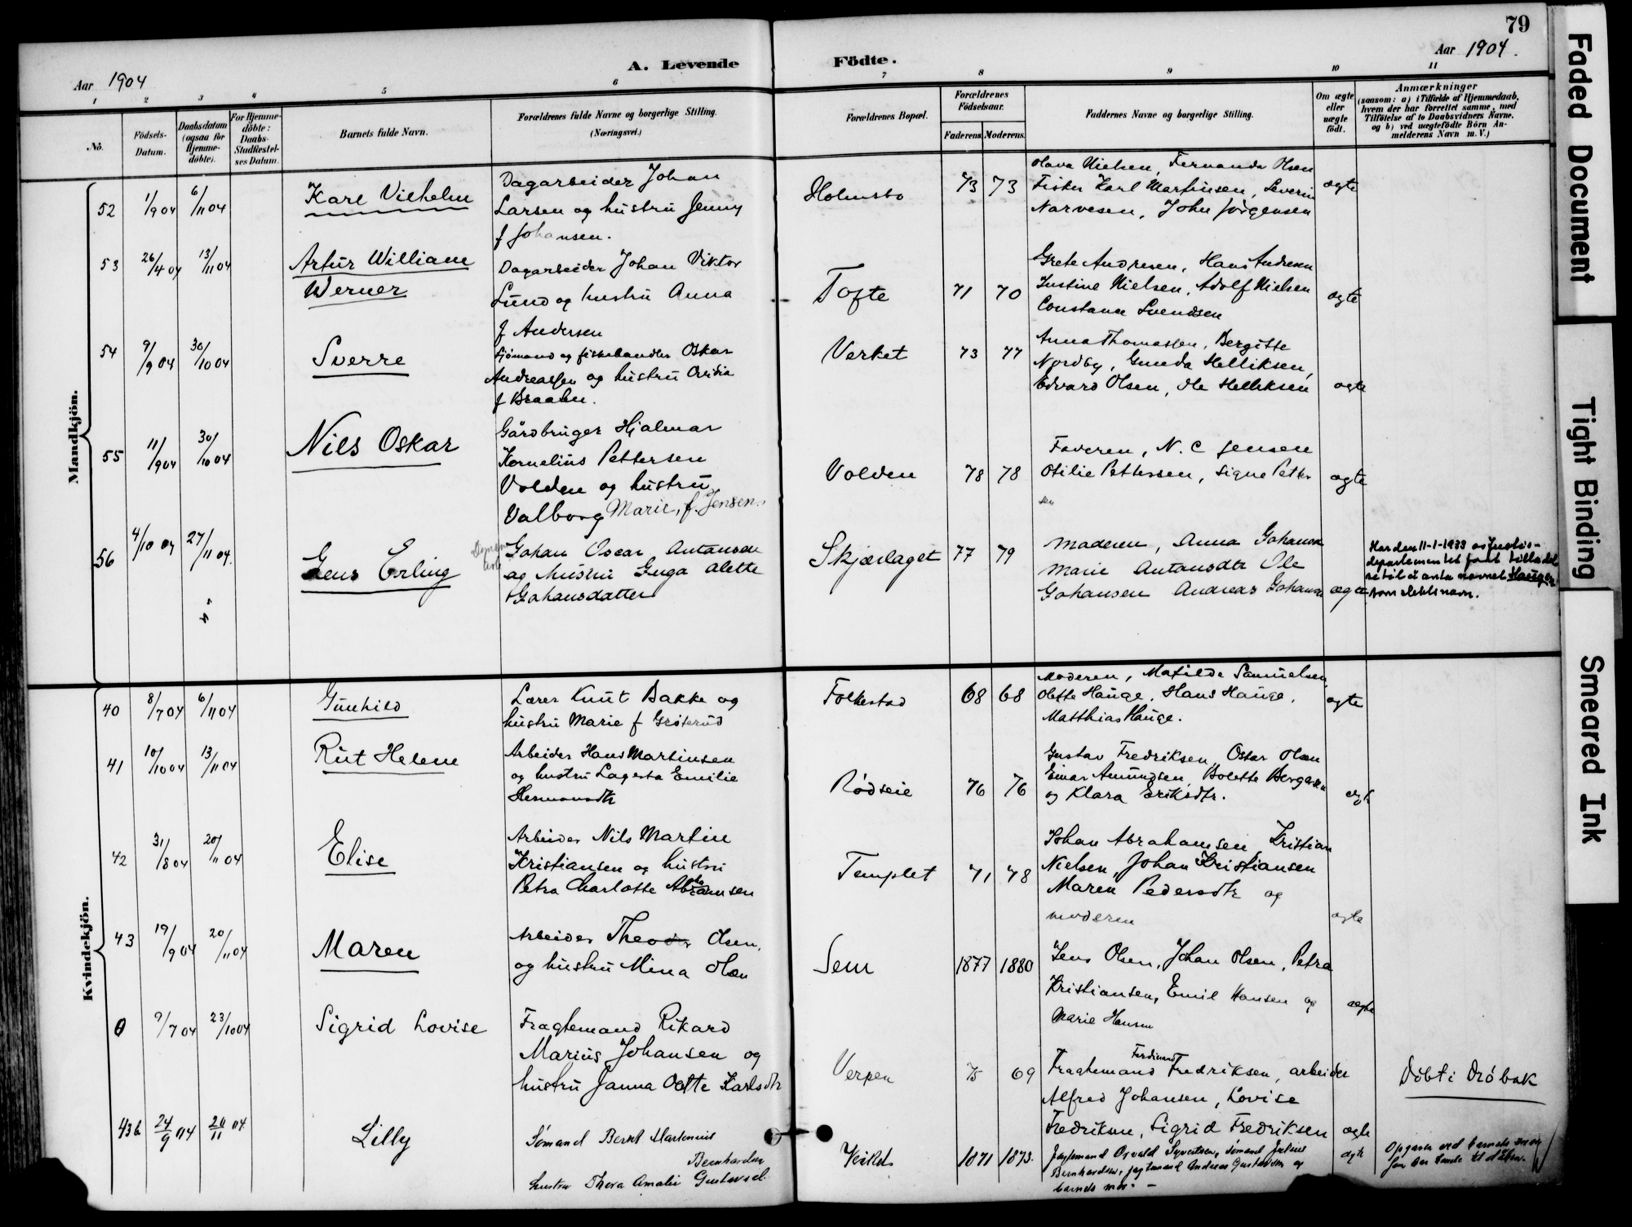 79
Aar 1904
A. Levende
Födte.
Aar 1904.
1 2 3 4 5 6 7 8 9 10 11
No.
Födsels-
Datum.
Daabsdatum
(ogsaa for
Hjemme-
döbte).
For Hjemme-
döbte:
Daabs-
Stadfæstel-
ses Datum.
Barnets fulde Navn.
Forældrenes fulde Navne og borgerlige Stilling.
(Næringsvei.)
Forældrenes Bopæl.
Forældrenes
Födselsaar.
Faderens
Moderens.
Faddernes Navne og borgerlige Stilling.
Om ægte
eller
uægte
födt.
Anmærkninger
(saasom: a) i Tilfælde af Hjemmedaab,
hvem der har forrettet samme, med
Tilföielse af to Daabsvidners Navne,
og b) ved uægtefödte Börn An-
melderens Navn m. V.)
Mandkjön.
52 1/9 04 6/11 04 Karl Vilhelm
Dagarbeider Johan
Larsen og hustru Jenny
f Johansen.
Holmsbo 73 73
Nielsen, Fernanda Olsen
Fisker Karl Martinsen, Severin
Narvesen, John Jörgensen
ægte
53 26/4 04 13/11 04 Artur William
Werner
Dagarbeider Johan Viktor
Lund og hustru Anna
f Andersen
Tofte 71 70
Grete Andresen, Hans Andresen
Justine Nielsen, Adolf Nielsen
Constance Svendsen
ægte
54 9/9 04 30/10 04 Sverre
Sjömand og fiskehandler Oskar
Andreassen og hustru
f Braaten.
Verket 73 77
Anna Thomassen, Bergitte
Nordby, Gunda Helliksen,
Edvard Olsen, Ole Helliksen
ægte
55 11/9 04 30/10 04 Nils Oskar
Gårdbruger Hjalmar
Kornelius Pettersen
Volden og hustru
Valborg Marie, f. Jensen.
Volden 78 78
Faderen, N. C Jensen
Otilie Pettersen, Signe Petter
sen
ægte
56 4/10 04 27/11 04 Jens Erling
Johan Oscar Antonsen
og hustru Inga Alette
Johansdatter
Skjærlaget 77 79
Moderen, Anna Johansen
Marie Antonsdtr Ole
Johansen Andreas Johansen
ægte
Har den 11-1-1933 av Justis-
departementet fått tilladel
se til å anta navnet Haugen
som slektsnavn.
Kvindekjön.
40 8/7 04 6/11 04 Gunhild
Lærer Knut Bakke og
hustru Marie f Gröterud
Folkestad 68 68
Moderen, Matilde Samuelsen,
Olette Hauge, Hans Hauge,
Matthias Hauge.
ægte
41 10/10 04 13/11 04 Rut Helene
Arbeider Hans Martinsen
og hustru Lagerta Emilie
Hermansdtr
Rödseie 76 76
Gustav Fredriksen, Oskar Olsen
Einar Amundsen, Bolette Bergersen
og Klara Eriksdtr.
ægte
42 31/8 04 20/11 04 Elise
Arbeider Nils Martin
Kristiansen og hustru
Petra Charlotte Abrahamsen
Templet 71 78
Johan Abrahamsen Kristian
Nielsen, Johan Kristiansen
Maren Pedersdtr og
moderen
ægte
43 19/9 04 20/11 04 Maren
Arbeider Theodor Olsen,
og hustru Mina Olsen
Sem 1877 1880
Jens Olsen, Johan Olsen, Petra
Kristiansen, Emil Hansen og
Marie Hansen
ægte
0 9/7 04 23/10 04 Sigrid Lovise
Fragtemand Rikard
Marius Johansen og
hustru Janna Karlsdtr
Verpen 75 69
Ferdinand
Fragtemand Fredriksen, arbeider
Alfred Johansen, Lovise
Fredriksen, Sigrid Fredriksen
ægte
Döbt i Dröbak
43b 24/9 04 20/11 04 Lilly
Sömand Bernt Martinius
Bernhardsen
hustru Thora Amalie Gustavsd.
1871 1873.
Oswald Syvertsen, Sömand Julius
Bernhardsen, Andreas Gustavsen og
barnets mor. –
ægte
Faded Document
Tight Binding
Smeared Ink